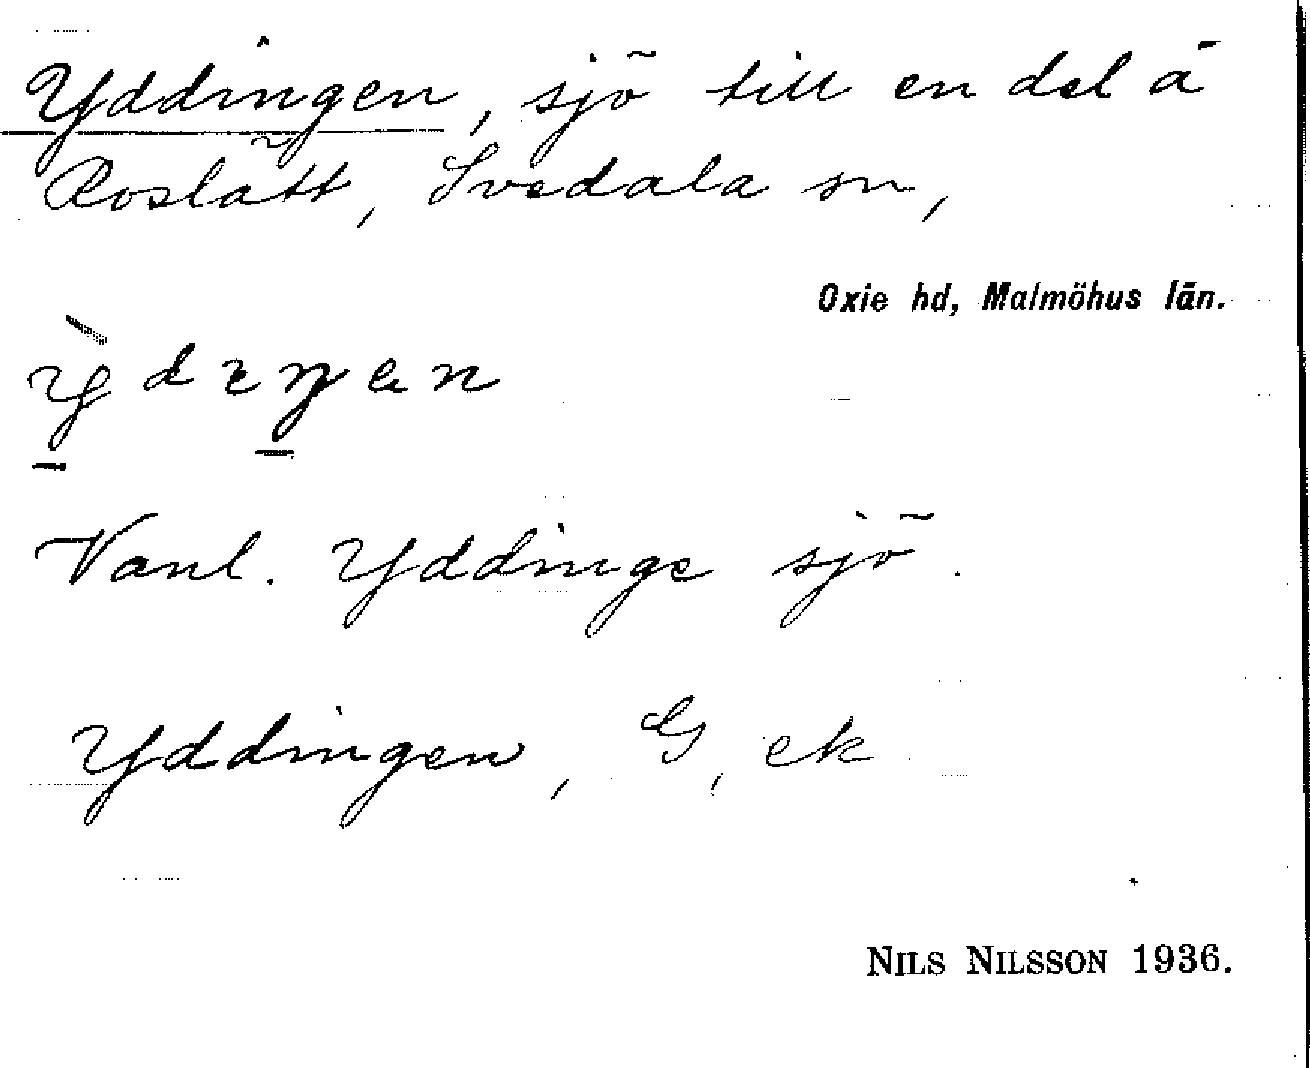 Yddingen, sjö till en del å
Roslätt, Svedala sn,
Oxie hd, Malmöhus län.
Vanl. Yddinge sjö.
Yddingen, G, ek
NILS NILSSON 1936.